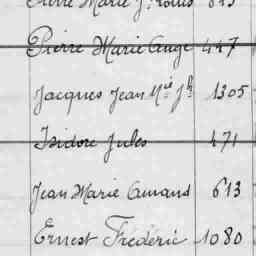 Pierre Marie J. Louis 815
Pierre Marie Ange 447
Jacques Jean Mie Jh 1305
Isidore Jules 471
Jean Marie Amand 613
Ernest Frédéric 1080